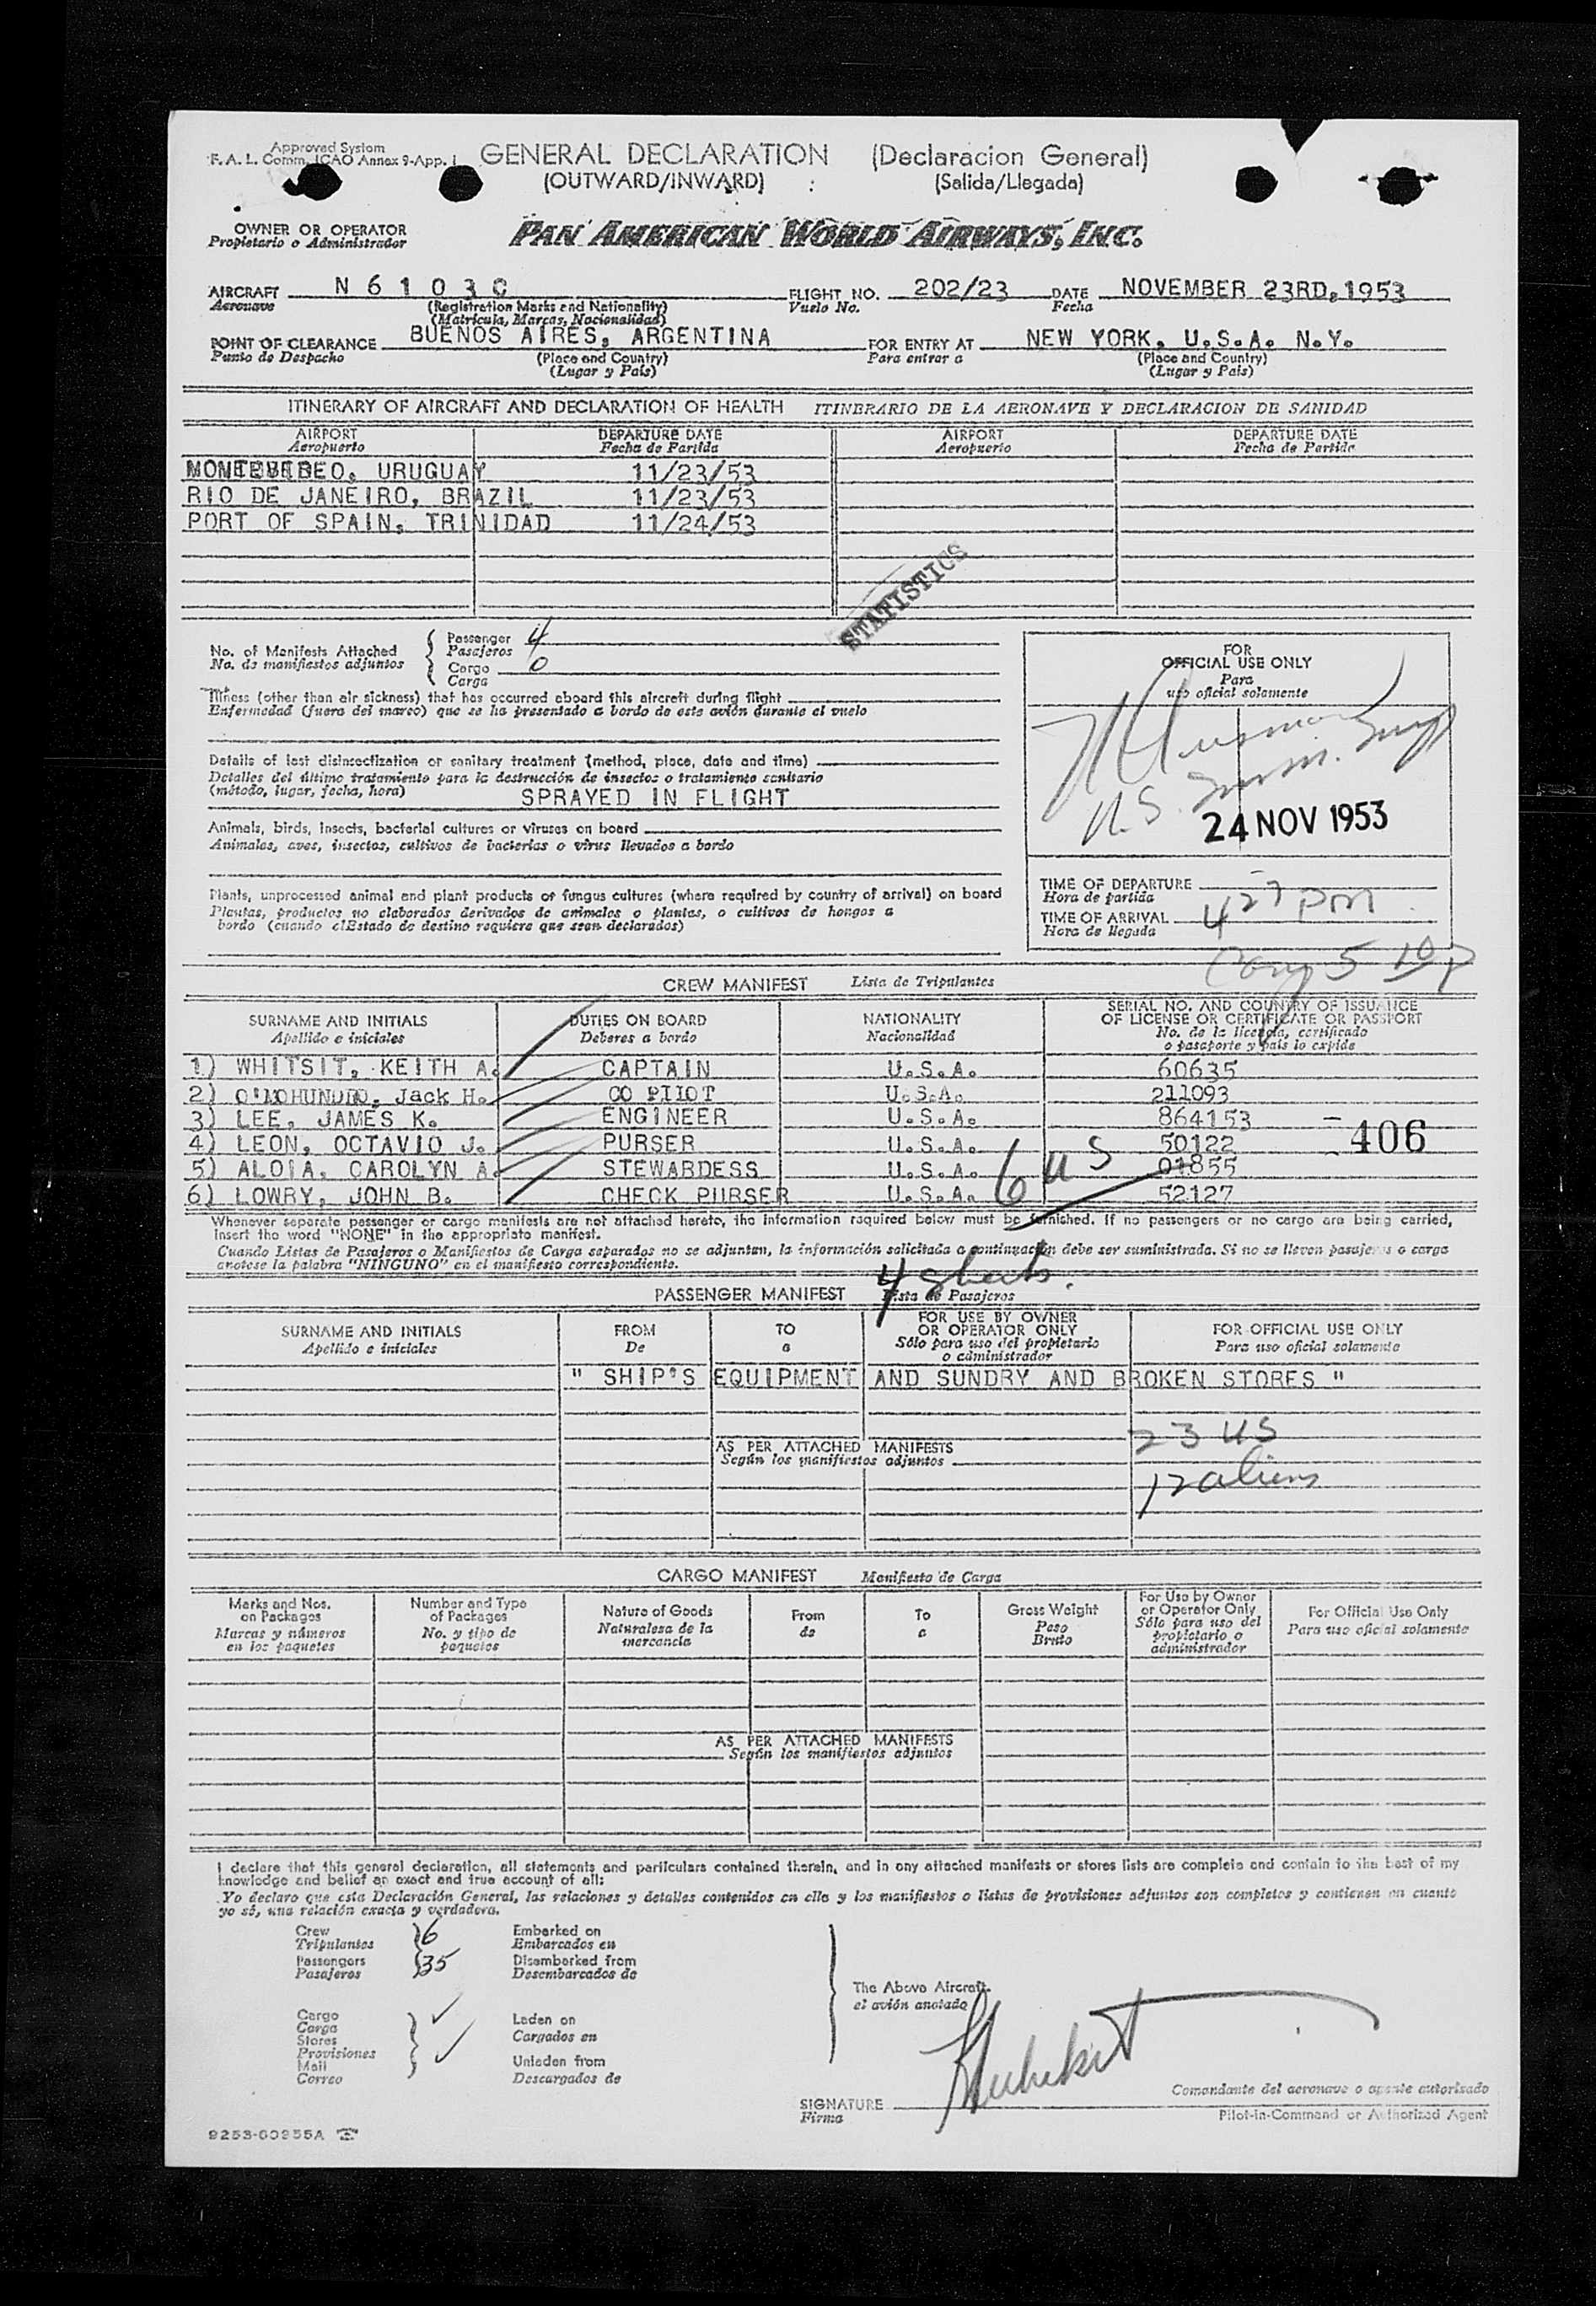 Approved System
F. A. L. Comm. ICAO Annex 9-App. 1
GENERAL DECLARATION (Declaracion General)
(OUTWARD/INWARD) : (Salida/Llegada)
OWNER OR OPERATOR
Propietario o Administrador
PAN AMERICAN WORLD AIRWAYS, INC.
AIRCRAFT N 6 1 0 3 C FLIGHT NO. 202/23 DATE NOVEMBER 23RD, 1953
Aeronave (Registration Marks and Nationality) Vuelo No. Fecha
(Matricula, Marcas, Nacionalidad)
POINT OF CLEARANCE BUENOS AIRES, ARGENTINA FOR ENTRY AT NEW YORK, U.S.A. N.Y.
Punto de Despacho (Place and Country) Para entrar a (Place and Country)
(Lugar y País) (Lugar y País)
ITINERARY OF AIRCRAFT AND DECLARATION OF HEALTH ITINERARIO DE LA AERONAVE Y DECLARACION DE SANIDAD
AIRPORT DEPARTURE DATE AIRPORT DEPARTURE DATE
Aeropuerto Fecha de Partida Aeropuerto Fecha de Partida
MONTEVIDEO, URUGUAY 11/23/53
RIO DE JANEIRO, BRAZIL 11/23/53
PORT OF SPAIN, TRINIDAD 11/24/53
STATISTICS
No. of Manifests Attached
No. de manifiestos adjuntos
Passenger 4
Pasajeros
Cargo 0
Carga
Illness (other than air sickness) that has occurred aboard this aircraft during flight
Enfermedad (fuera del mareo) que se ha presentado a bordo de este avión durante el vuelo
Details of last disinsectization or sanitary treatment (method, place, date and time)
Detalles del último tratamiento para la destrucción de insectos o tratamiento sanitario
(método, lugar, fecha, hora) SPRAYED IN FLIGHT
Animals, birds, insects, bacterial cultures or viruses on board
Animales, aves, insectos, cultivos de bacterias o virus llevados a bordo
Plants, unprocessed animal and plant products or fungus cultures (where required by country of arrival) on board
Plantas, productos no elaborados derivados de animales o plantas, o cultivos de hongos a
bordo (cuando el Estado de destino requiera que sean declarados)
FOR
OFFICIAL USE ONLY
Para
uso oficial solamente
U.S. Immi. Insp
24 NOV 1953
TIME OF DEPARTURE
Hora de partida
TIME OF ARRIVAL 4 27 PM
Hora de llegada
5 10 P
CREW MANIFEST Lista de Tripulantes
SURNAME AND INITIALS DUTIES ON BOARD NATIONALITY SERIAL NO. AND COUNTRY OF ISSUANCE
OF LICENSE OR CERTIFICATE OR PASSPORT
Apellido e iniciales Deberes a bordo Nacionalidad No. de la licencia, certificado
o pasaporte y país lo expide
1) WHITSIT, KEITH A. CAPTAIN U.S.A. 60635
2) O'MOHUNDRO, Jack H. CO PILOT U.S.A. 211093
3) LEE, JAMES K. ENGINEER U.S.A. 864153
4) LEON, OCTAVIO J. PURSER U.S.A. 50122
5) ALOIA, CAROLYN A. STEWARDESS U.S.A. 01855
6) LOWRY, JOHN B. CHECK PURSER U.S.A. 52127
406
6 US
Whenever separate passenger or cargo manifests are not attached hereto, the information required below must be furnished. If no passengers or no cargo are being carried,
insert the word "NONE" in the appropriate manifest.
Cuando Listas de Pasajeros o Manifiestos de Carga separados no se adjuntan, la información solicitada a continuación debe ser suministrada. Si no se lleven pasajeros o carga
anotese la palabra "NINGUNO" en el manifiesto correspondiente.
4 sheets.
PASSENGER MANIFEST Lista de Pasajeros
SURNAME AND INITIALS FROM TO FOR USE BY OWNER
OR OPERATOR ONLY FOR OFFICIAL USE ONLY
Apellido e iniciales De a Sólo para uso del propietario
o administrador Para uso oficial solamente
" SHIP'S EQUIPMENT AND SUNDRY AND BROKEN STORES "
23 US
AS PER ATTACHED MANIFESTS
Según los manifiestos adjuntos
12 aliens
CARGO MANIFEST Manifiesto de Carga
Marks and Nos.
on Packages
Marcas y números
en los paquetes
Number and Type
of Packages
No. y tipo de
paquetes
Nature of Goods
Naturalesa de la
mercancia
From
de
To
a
Gross Weight
Peso
Bruto
For Use by Owner
or Operator Only
Sólo para uso del
propietario o
administrador
For Official Use Only
Para uso oficial solamente
AS PER ATTACHED MANIFESTS
Según los manifiestos adjuntos
I declare that this general declaration, all statements and particulars contained therein, and in any attached manifests or stores lists are complete and contain to the best of my
knowledge and belief an exact and true account of all:
Yo declaro que esta Declaración General, las relaciones y detalles contenidos en ella y los manifiestos o listas de provisiones adjuntos son completos y contienen en cuanto
yo sé, una relación exacta y verdadera.
Crew 6 Embarked on
Tripulantes Embarcados en
Passengers 35 Disembarked from
Pasajeros Desembarcados de
The Above Aircraft
el avión anotado
Cargo
Carga
Stores
Provisiones
Mail
Correo
Laden on
Cargados en
Unladen from
Descargados de
SIGNATURE
Firma
Comandante del aeronave o agente autorizado
Pilot-in-Command or Authorized Agent
9253-00955A